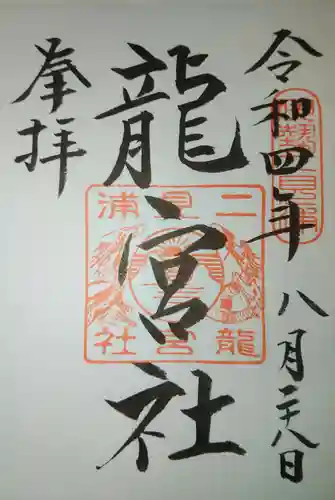 令和四年八月二十八日
龍宮社
奉拝
二見浦
龍宮社